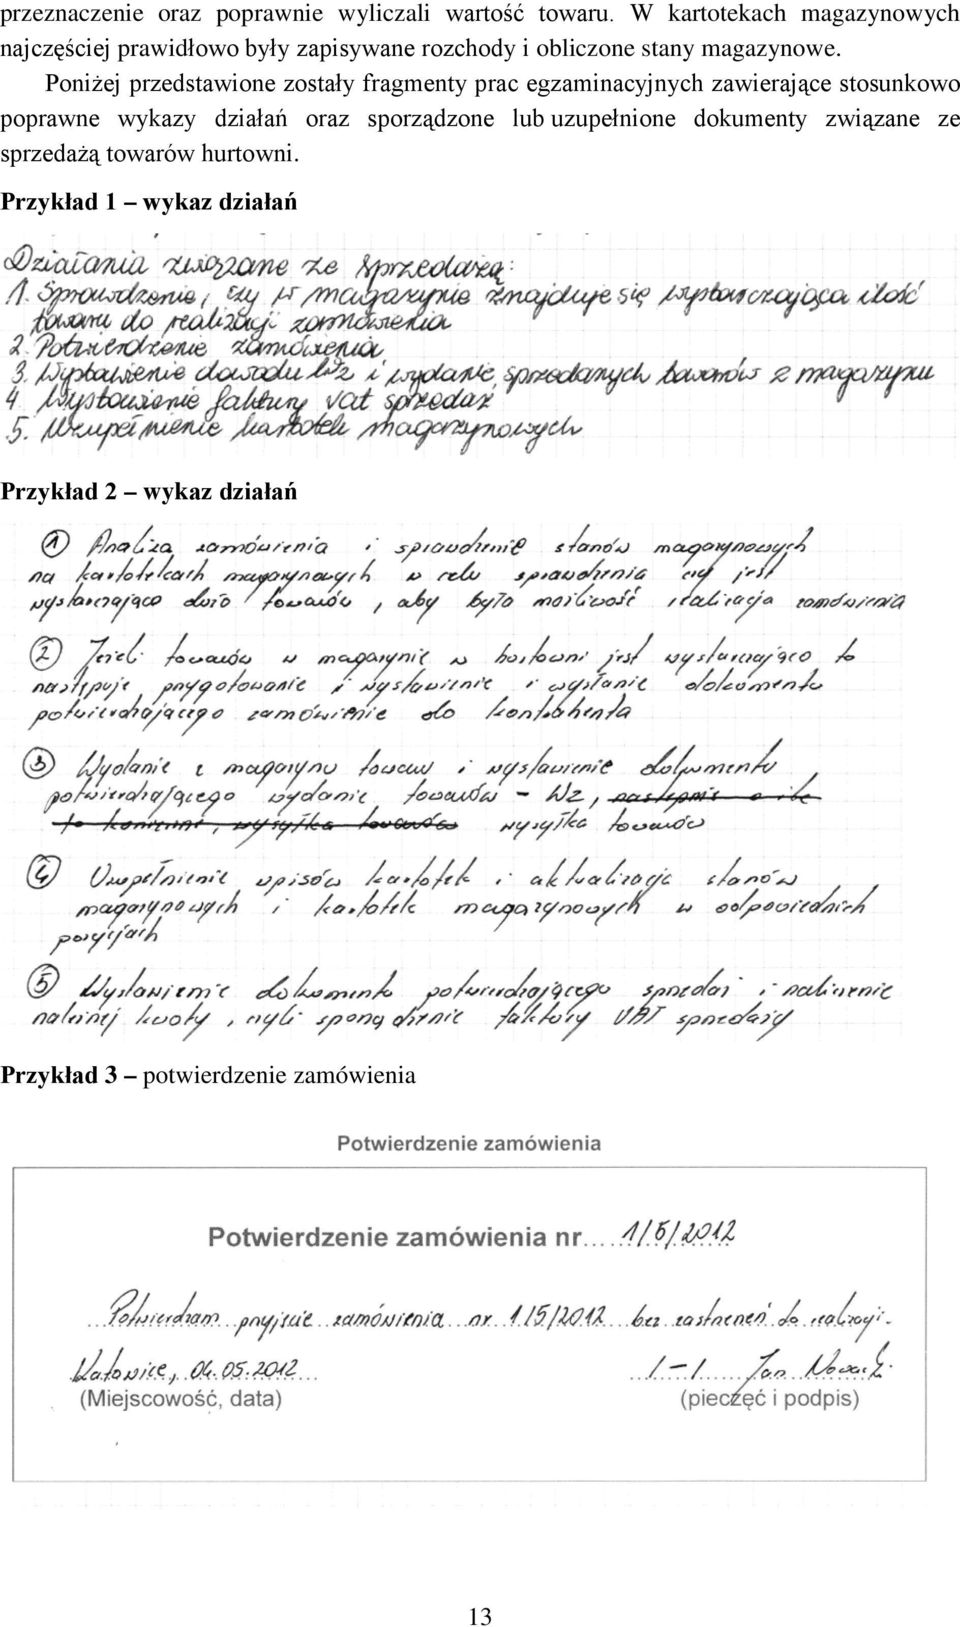 przeznaczenie oraz poprawnie wyliczali wartość towaru. W kartotekach magazynowych
najczęściej prawidłowo były zapisywane rozchody i obliczone stany magazynowe.
Poniżej przedstawione zostały fragmenty prac egzaminacyjnych zawierające stosunkowo
poprawne wykazy działań oraz sporządzone lub uzupełnione dokumenty związane ze
sprzedażą towarów hurtowni.
Przykład 1 – wykaz działań
Działania związane ze sprzedażą:
1. Sprawdzenie, czy w magazynie znajduje się wystarczająca ilość
towaru do realizacji zamówienia
2. Potwierdzenie zamówienia
3. Wystawienie dowodu Wz i wydanie sprzedanych towarów z magazynu
4. Wystawienie faktury vat sprzedaż
5. Uzupełnienie kartotek magazynowych
Przykład 2 – wykaz działań
1 Analiza zamówienia i sprawdzenie stanów magazynowych
na kartotekach magazynowych w celu sprawdzenia czy jest
wystarczająco dużo towarów, aby było możliwość realizacja zamówienia
2 Jeżeli towarów w magazynie w hurtowni jest wystarczająco to
następuje przygotowanie i wystawienie i wysłanie dokumentu
potwierdzającego zamówienie do kontrahenta
3 Wydanie z magazynu towaru i wystawienie dokumentu
potwierdzającego wydanie towarów - Wz, następnie o ile
to konieczne, wysyłka towarów wysyłka towarów
4 Uzupełnienie wpisów kartotek i aktualizacja stanów
magazynowych i kartotek magazynowych w odpowiednich
pozycjach
5 Wystawienie dokumentu potwierdzającego sprzedaż i naliczenie
należnej kwoty, czyli sporządzenie faktury VAT sprzedaży
Przykład 3 – potwierdzenie zamówienia
Potwierdzenie zamówienia
Potwierdzenie zamówienia nr 1/5/2012
Potwierdzam przyjęcie zamówienia nr 1/5/2012 bez zastrzeżeń do realizacji.
Katowice, 04.05.2012 /-/ Jan Nowak
(Miejscowość, data) (pieczęć i podpis)
13